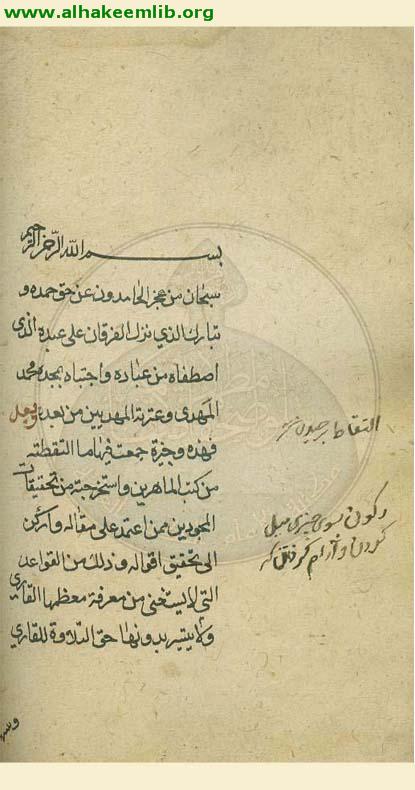 www.alhakeemlib.org
بسم الله الرحمن الرحيم
سبحان من عجز الحامدون عن حق حمده و
تبارك الذي نزل الفرقان على عبده الذي
اصطفاه من عباده واجتباه بمجده محمد
المهدى وعترته المهديين من بعده وبعد
فهذه وجيزة جمعت فيها ما التقطته
من كتب الماهرين واستخرجته من تحقيقات
المجودين ممن اعتمد على مقاله واركن
الى تحقيق اقواله وذلك من القواعد
التي لا يستغنى من معرفة معظمها القاري
ولا يتيسر بدونها حق التلاوة للقاري
التقاط برچیدن
ركون بسوى چیزی میل
كردن و آرام گرفتن